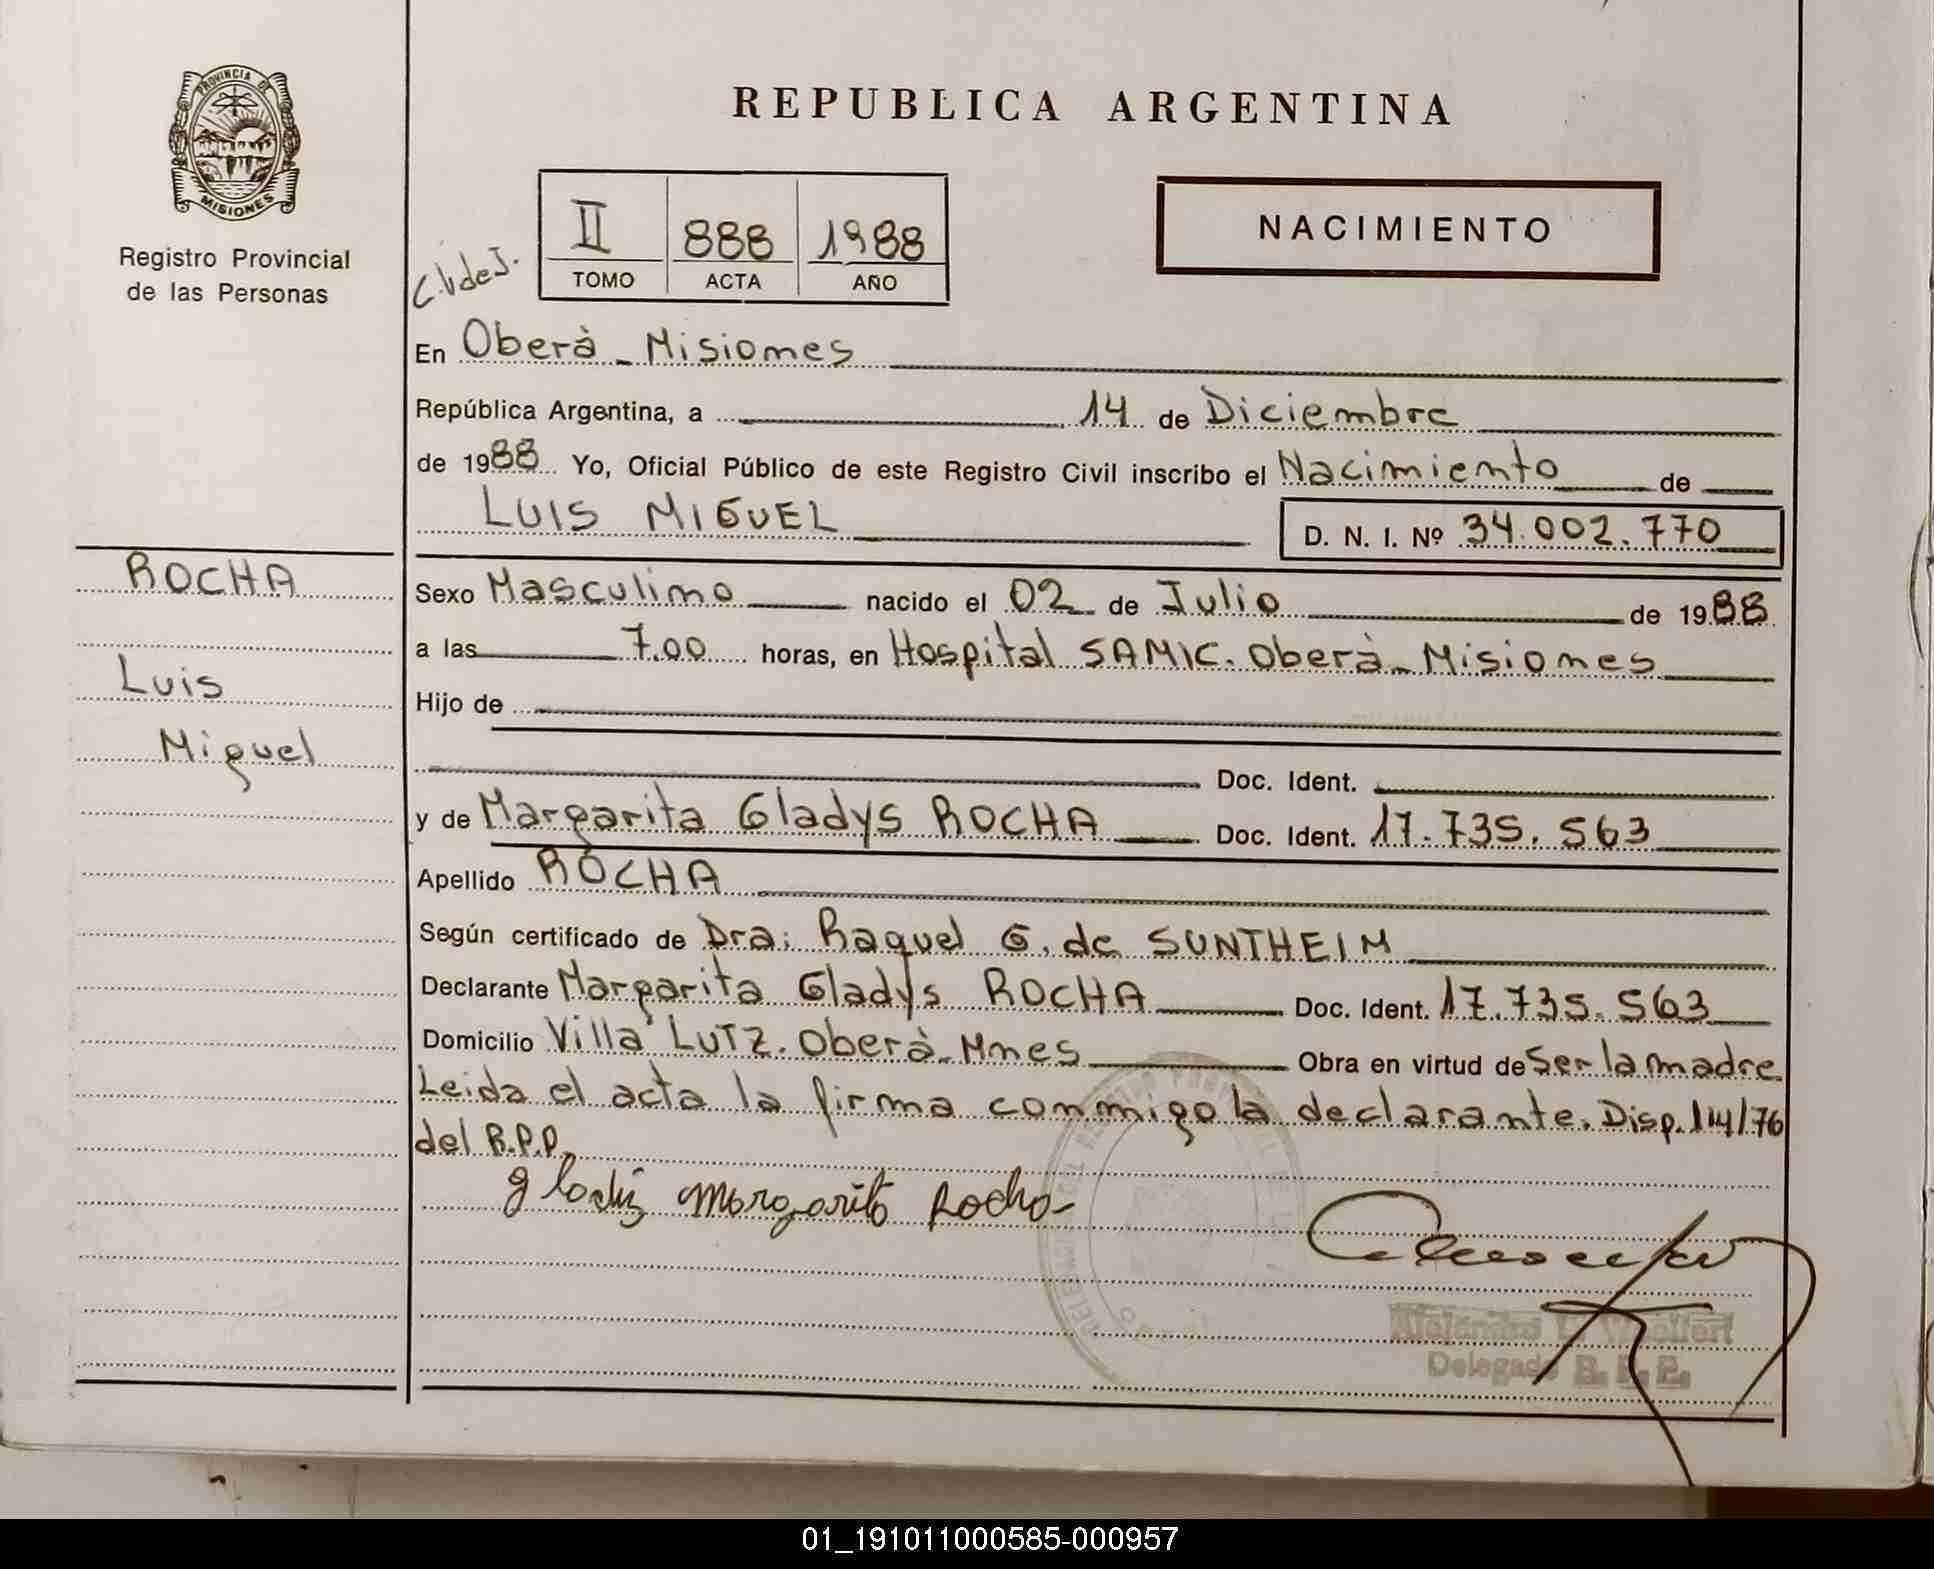 PROVINCIA DE
MISIONES
Registro Provincial
de las Personas
REPUBLICA ARGENTINA
II 888 1988
TOMO ACTA AÑO
NACIMIENTO
En Oberà - Misiones
República Argentina, a 14 de Diciembre
de 1988 Yo, Oficial Público de este Registro Civil inscribo el Nacimiento de
LUIS MIGUEL D. N. I. Nº 34.002.770
ROCHA
Luis
Miguel
Sexo Masculino nacido el 02 de Julio de 1988
a las 7.00 horas, en Hospital SAMIC. Oberà - Misiones
Hijo de
Doc. Ident.
y de Margarita Gladys ROCHA Doc. Ident. 17.735.563
Apellido ROCHA
Según certificado de Dra: Raquel G. de SUNTHEIM
Declarante Margarita Gladys ROCHA Doc. Ident. 17.735.563
Domicilio Villa LUTZ. Oberà - Mnes Obra en virtud de Ser la madre
Leida el acta la firma conmigo la declarante. Disp. 114/76
del R.P.P.
Gladiz Margarita Rocha
Delegado R. P. P.
01_191011000585-000957